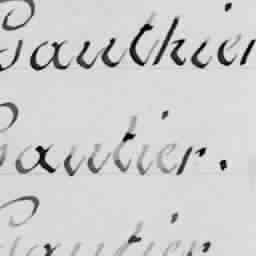 Gauthier
Gautier.
Gautier